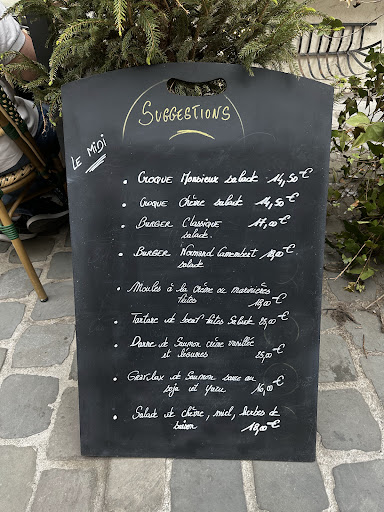 SUGGESTIONS
LE MIDI
• CROQUE Monsieur salade 14,50€
• CROQUE Chèvre salade 14,50€
• BURGER Classique 17,00€
salade.
• BURGER Normand Camembert 18,00€
salade
• Moules à la crème ou marinières
frites 18,00€
• Tartare de bœuf frites Salade 23,00€
• Darne de Saumon crème vanillée
et légumes 25,00€
• Gravlax de Saumon sauce au
soja et yuzu 16,00€
• Salade de chèvre, miel, herbes de
saison 18,00€